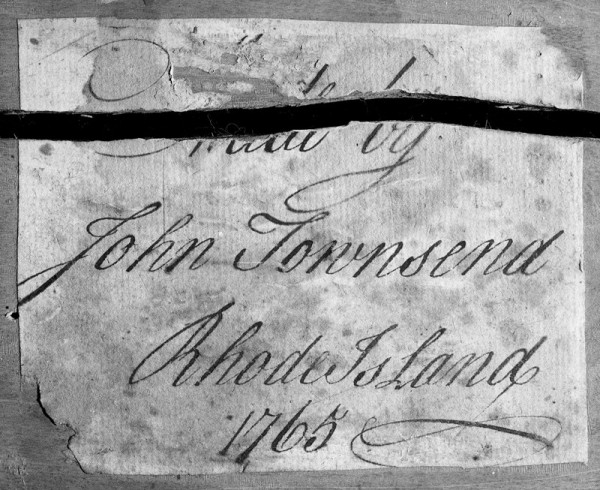 Made by
John Townsend
Rhode Island
1765